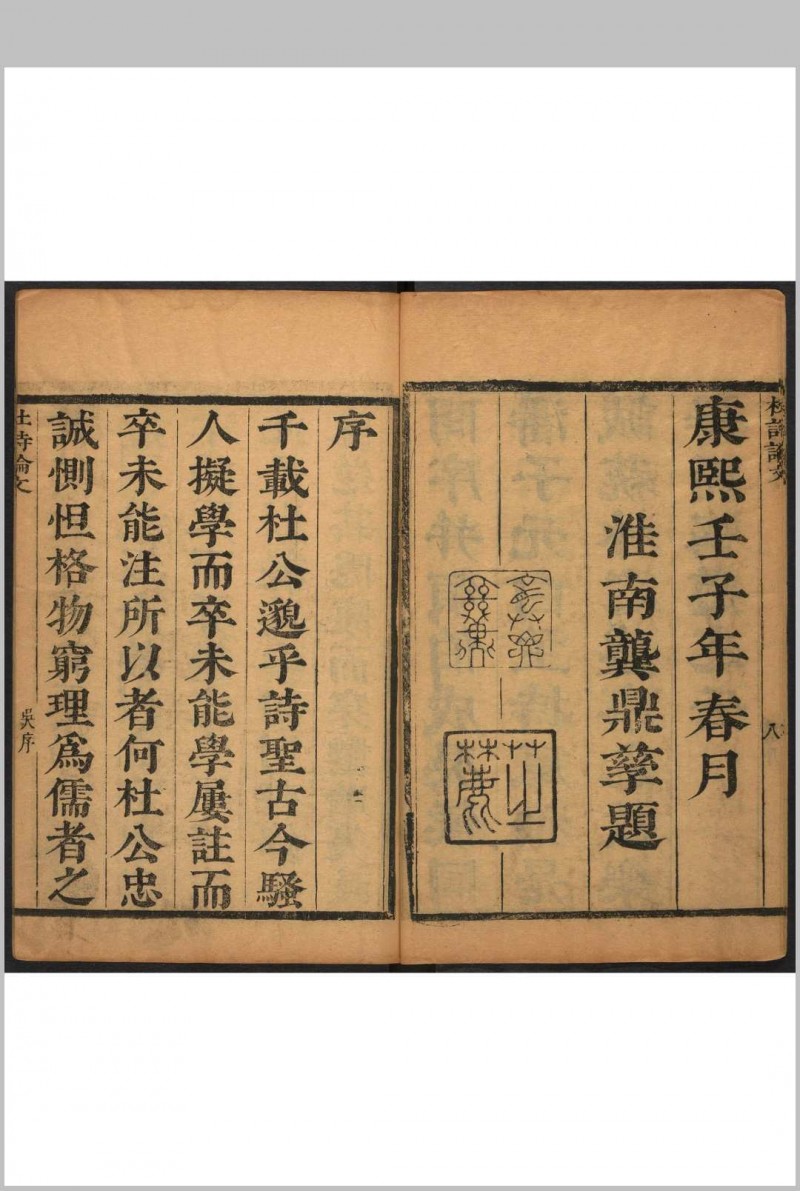 杜詩論文
八
康熙壬子年春月
淮南龔鼎孳題
序
千載杜公邈乎詩聖古今騷
人擬學而卒未能學屢註而
卒未能注所以者何杜公忠
誠惻怛格物窮理爲儒者之
杜詩論文
吳序